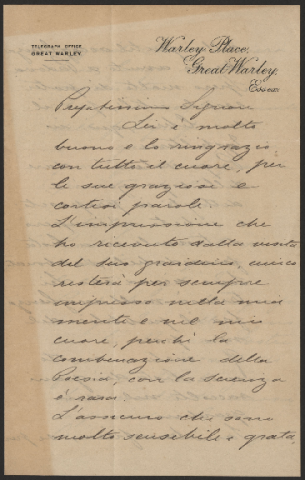 TELEGRAPH OFFICE
GREAT WARLEY.
Warley Place,
Great Warley,
Essex.
Pregiatissimo Signore
Lei è molto
buono e lo ringrazio
con tutto il cuore, per
le sue graziose e
cortesi parole
L'impressione che
ho ricevuto dalla visita
del suo giardino, unico
resterà per sempre
impresso nella mia
mente e nel mio
cuore, perchè la
combenazione della
Poesia, con la scienza
è rara.
L'assicuro che sono
molto sensibile e grata